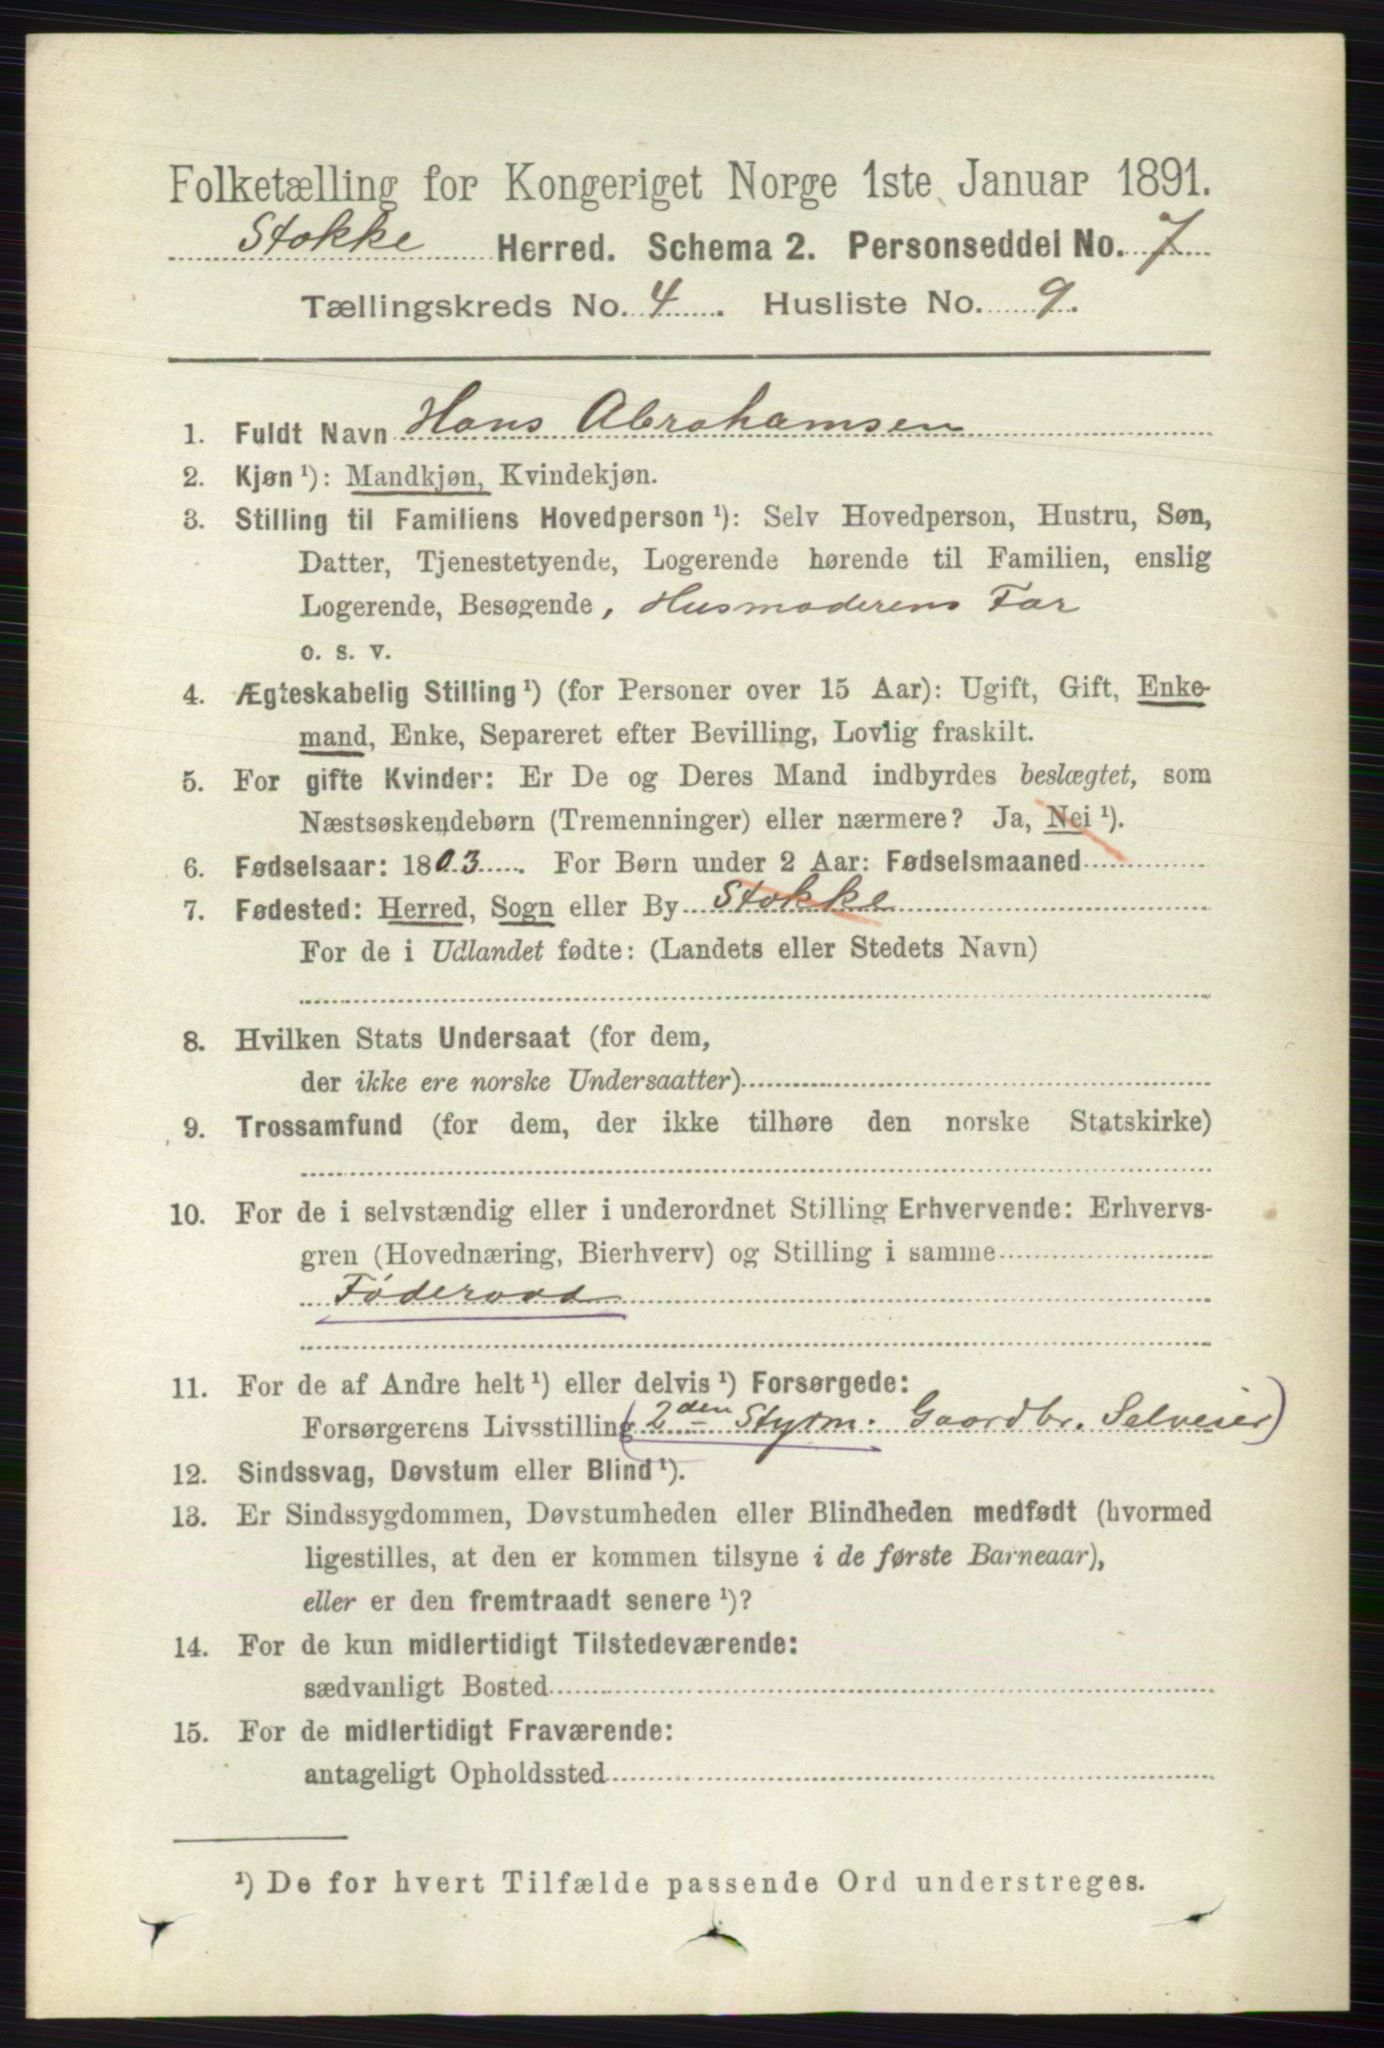 Folketælling for Kongeriget Norge 1ste Januar 1891.
Stokke Herred. Schema 2. Personseddel No. 7
Tællingskreds No. 4. Husliste No. 9.
1. Fuldt Navn Hans Abrahamsen
2. Kjøn ¹): Mandkjøn, Kvindekjøn.
3. Stilling til Familiens Hovedperson ¹): Selv Hovedperson, Hustru, Søn,
Datter, Tjenestetyende, Logerende hørende til Familien, enslig
Logerende, Besøgende, Husmoderens Far
o. s. v.
4. Ægteskabelig Stilling ¹) (for Personer over 15 Aar): Ugift, Gift, Enke-
mand, Enke, Separeret efter Bevilling, Lovlig fraskilt.
5. For gifte Kvinder: Er De og Deres Mand indbyrdes beslægtet, som
Næstsøskendebørn (Tremenninger) eller nærmere? Ja, Nei ¹).
6. Fødselsaar: 1803. For Børn under 2 Aar: Fødselsmaaned
7. Fødested: Herred, Sogn eller By Stokke
For de i Udlandet fødte: (Landets eller Stedets Navn)
8. Hvilken Stats Undersaat (for dem,
der ikke ere norske Undersaatter)
9. Trossamfund (for dem, der ikke tilhøre den norske Statskirke)
10. For de i selvstændig eller i underordnet Stilling Erhvervende: Erhvervs-
gren (Hovednæring, Bierhverv) og Stilling i samme
Føderaad
11. For de af Andre helt ¹) eller delvis ¹) Forsørgede:
Forsørgerens Livsstilling (2den Styrm. Gaardbr. Selveier)
12. Sindssvag, Døvstum eller Blind ¹).
13. Er Sindssygdommen, Døvstumheden eller Blindheden medfødt (hvormed
ligestilles, at den er kommen tilsyne i de første Barneaar),
eller er den fremtraadt senere ¹)?
14. For de kun midlertidigt Tilstedeværende:
sædvanligt Bosted
15. For de midlertidigt Fraværende:
antageligt Opholdssted
¹) De for hvert Tilfælde passende Ord understreges.